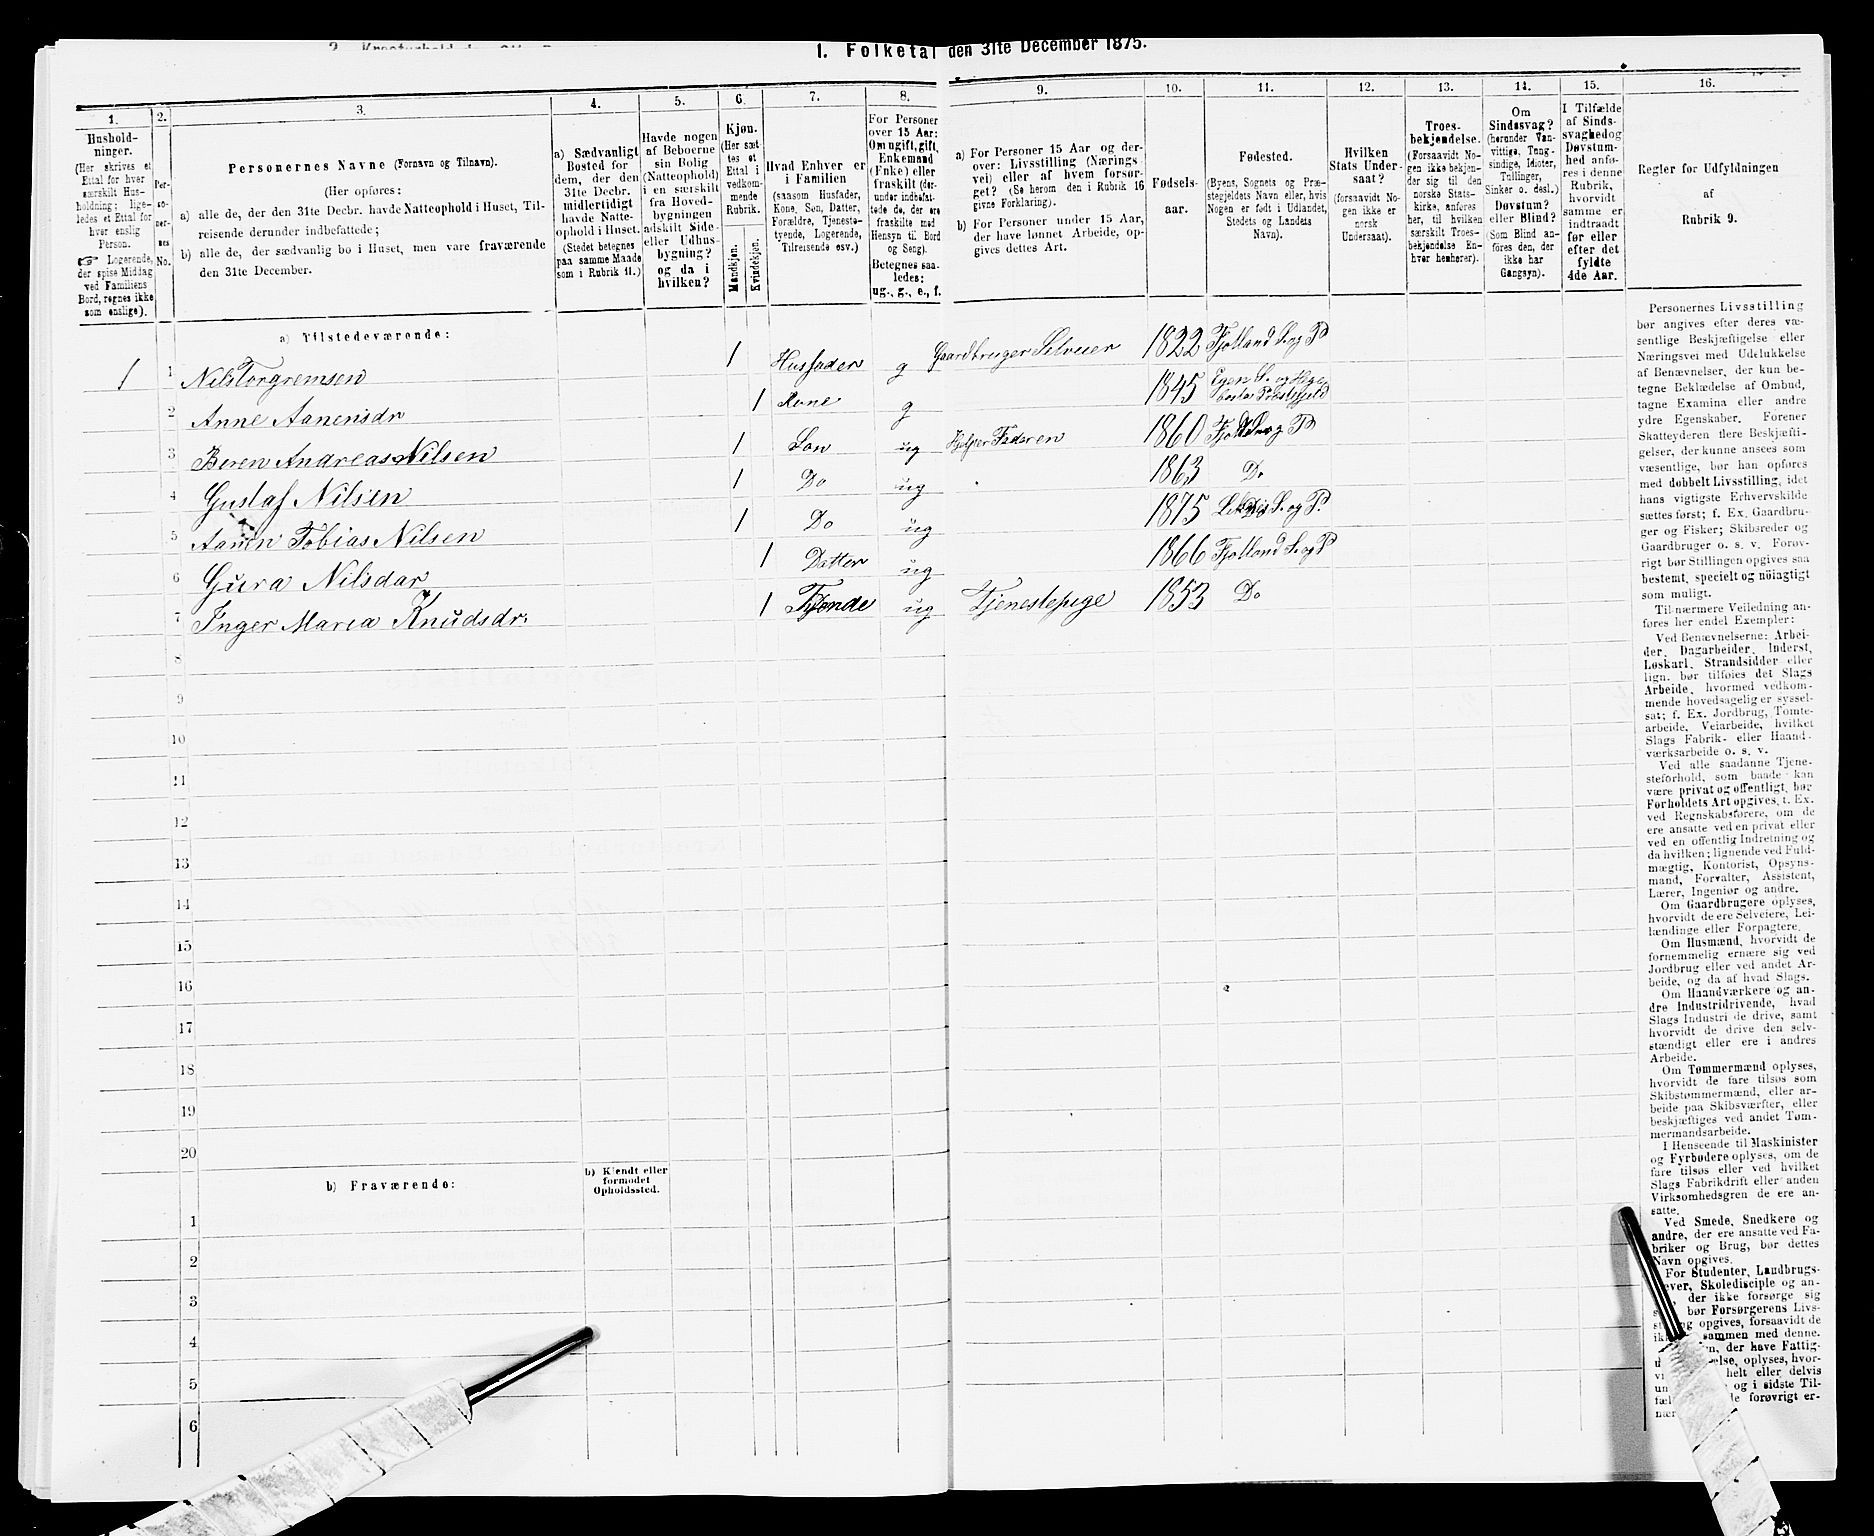 1. Folketal den 31te December 1875.
1. 2. 3. 4. 5. 6. 7. 8. 9. 10. 11. 12. 13. 14. 15. 16.
Hushold-
ninger.
(Her skrives et
Ettal for hver
særskilt Hus-
holdning; lige-
ledes et Ettal for
hver enslig
Person.
Logerende,
der spise Middag
ved Familiens
Bord, regnes ikke
som enslige).
Per-
soner-
nes
No.
Personernes Navne (Fornavn og Tilnavn).
(Her opføres:
a) alle de, der den 31te Decbr. havde Natteophold i Huset, Til-
reisende derunder indbefattede;
b) alle de, der sædvanlig bo i Huset, men vare fraværende
den 31te December.
a) Sædvanligt
Bosted for
dem, der den
31te Decbr.
midlertidigt
havde Natte-
ophold i Huset.
(Stedet betegnes
paa samme Maade
som i Rubrik 11.)
Havde nogen
af Beboerne
sin Bolig
(Natteophold)
i en særskilt
fra Hoved-
bygningen
adskilt Side-
eller Udhus-
bygning?
og da i
hvilken?
Kjøn.
(Her sæt-
tes et
Ettal i
vedkom-
mende
Rubrik.
Mandkjøn.
Kvindekjøn.
Hvad Enhver er
i Familien
(saasom Husfader,
Kone, Søn, Datter,
Forældre, Tjeneste-
tyende, Logerende,
Tilreisende osv.)
For Personer
over 15 Aar:
Om ugift, gift,
Enkemand
(Enke) eller
fraskilt (der-
under indbefat-
tede de, der ere
fraskilte med
Hensyn til Bord
og Seng).
Betegnes saa-
ledes:
ug., g., e., f.
a) For Personer 15 Aar og der-
over: Livsstilling (Nærings-
vei) eller af hvem forsør-
get? (Se herom den i Rubrik 16
givne Forklaring).
b) For Personer under 15 Aar,
der have lønnet Arbeide, op-
gives dettes Art.
Fødsels-
aar.
Fødested.
(Byens, Sognets og Præ-
stegjeldets Navn eller, hvis
Nogen er født i Udlandet,
Stedets og Landets
Navn).
Hvilken
Stats Under-
saat?
(forsaavidt No-
gen ikke er
norsk
Undersaat).
Troes-
bekjendelse.
(Forsaavidt No-
gen ikke bekjen-
der sig til den
norske Stats-
kirke, anføres
her, til hvilken
særskilt Troes-
bekjendelse En-
hver henhører).
Om
Sindssvag?
(herunder Van-
vittige, Tung-
sindige, Idioter,
Tullinger,
Sinker o. desl.)
Døvstum?
eller Blind?
(Som Blind an-
føres den, der
ikke har
Gangsyn).
I Tilfælde
af Sinds-
svaghed og
Døvstum-
hed anfø-
res i denne
Rubrik,
hvorvidt
samme er
indtraadt
før eller
efter det
fyldte
4de Aar.
Regler for Udfyldningen
af
Rubrik 9.
a) Tilstedeværende:
1 1 Nils Torgremsen 1 Husfader g Gaardbruger Selveier 1822 Fjotland S. og P
2 Anne Aanensdr 1 Kone g 1845 Egen S. og Hege-
bostad Præstegjeld
3 Beren Andreas Nilsen 1 Søn ug Hjelper Faderen 1860 Fjotland S. og P
4 Gustaf Nilsen 1 Do ug 1863 Do
5 Aanen Tobias Nilsen 1 Do ug 1875 S. og P.
6 Gura Nilsdar 1 Datter ug 1866 Fjotland S. og P
7 Inger Maria Knudsdr. 1 ug Tjenestepige 1853 Do
8
9
10
11
12
13
14
15
16
17
18
19
20
b) Fraværende:
b) Kjendt eller
formodet
Opholdssted.
1
2
3
4
5
6
Personernes Livsstilling
bør angives efter deres væ-
sentlige Beskjæftigelse eller
Næringsvei med Udelukkelse
af Benævnelser, der kun be-
tegne Beklædelse af Ombud,
tagne Examina eller andre
ydre Egenskaber. Forener
Skatteyderen flere Beskjæfti-
gelser, der kunne ansees som
væsentlige, bør han opføres
med dobbelt Livsstilling, idet
hans vigtigste Erhvervskilde
sættes først; f. Ex. Gaardbru-
ger og Fisker; Skibsreder og
Gaardbruger o. s. v. Forøv-
rigt bør Stillingen opgives saa
bestemt, specielt og nøiagtigt
som muligt.
Til nærmere Veiledning an-
føres her endel Exempler:
Ved Benævnelserne: Arbei-
der, Dagarbeider, Inderst,
Løskarl, Strandsidder eller
lign. bør tilføies det Slags
Arbeide, hvormed vedkom-
mende hovedsagelig er syssel-
sat; f. Ex. Jordbrug, Tomte-
arbeide, Veiarbeide, hvilket
Slags Fabrik- eller Haand-
værksarbeide o. s. v.
Ved alle saadanne Tjene-
steforhold, som baade kan
være privat og offentligt, bør
Forholdets Art opgives, t. Ex.
ved Regnskabsførere, om de
ere ansatte ved en privat eller
ved en offentlig Indretning og
da hvilken; lignende ved Fuld-
mægtig, Kontorist, Opsyns-
mand, Forvalter, Assistent,
Lærer, Ingeniør og andre.
Om Gaardbrugere oplyses,
hvorvidt de ere Selveiere, Lei-
lændinge eller Forpagtere.
Om Husmænd, hvorvidt de
fornemmelig ernære sig ved
Jordbrug eller ved andet Ar-
beide, og da af hvad Slags.
Om Haandværkere og an-
dre Industridrivende, hvad
Slags Industri de drive, samt
hvorvidt de drive den selv-
stændigt eller ere i andres
Arbeide.
Om Tømmermænd oplyses,
hvorvidt de fare tilsøs som
Skibstømmermænd, eller ar-
beide paa Skibsværfter, eller
beskjæftiges ved andet Tøm-
mermandsarbeide.
I Henseende til Maskinister
og Fyrbødere oplyses, om de
fare tilsøs eller ved hvilket
Slags Fabrikdrift eller anden
Virksomhedsgren de ere an-
satte.
Ved Smede, Snedkere og
andre, der ere ansatte ved Fa-
briker og Brug, bør dettes
Navn opgives.
For Studenter, Landbrugs-
elever, Skoledisciple og an-
der ikke forsørge sig
bør Forsørgerens Livs-
opgives, forsaavidt de
sammen med denne.
der have Fattig-
else, oplyses, hvor-
helt eller delvis
og i sidste Til-
forøvrigt er-